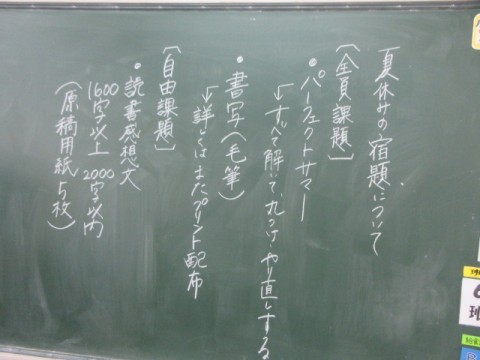 夏休みの宿題について
〔全員課題〕
・パーフェクトサマー
↳すべて解いて、丸つけ、やり直しする
・書写(毛筆)
↳詳しくはまたプリント配布
〔自由課題〕
・読書感想文
1600字以上2000字以内
(原稿用紙5枚)